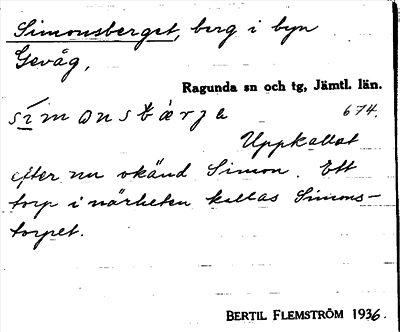 Simonsberget, berg i byn
Gevåg,
Ragunda sn och tg, Jämtl. län.
674.
Uppkallat
efter nu okänd Simon. Ett
torp i närheten kallas Simons-
torpet.
BERTIL FLEMSTRÖM 1936.